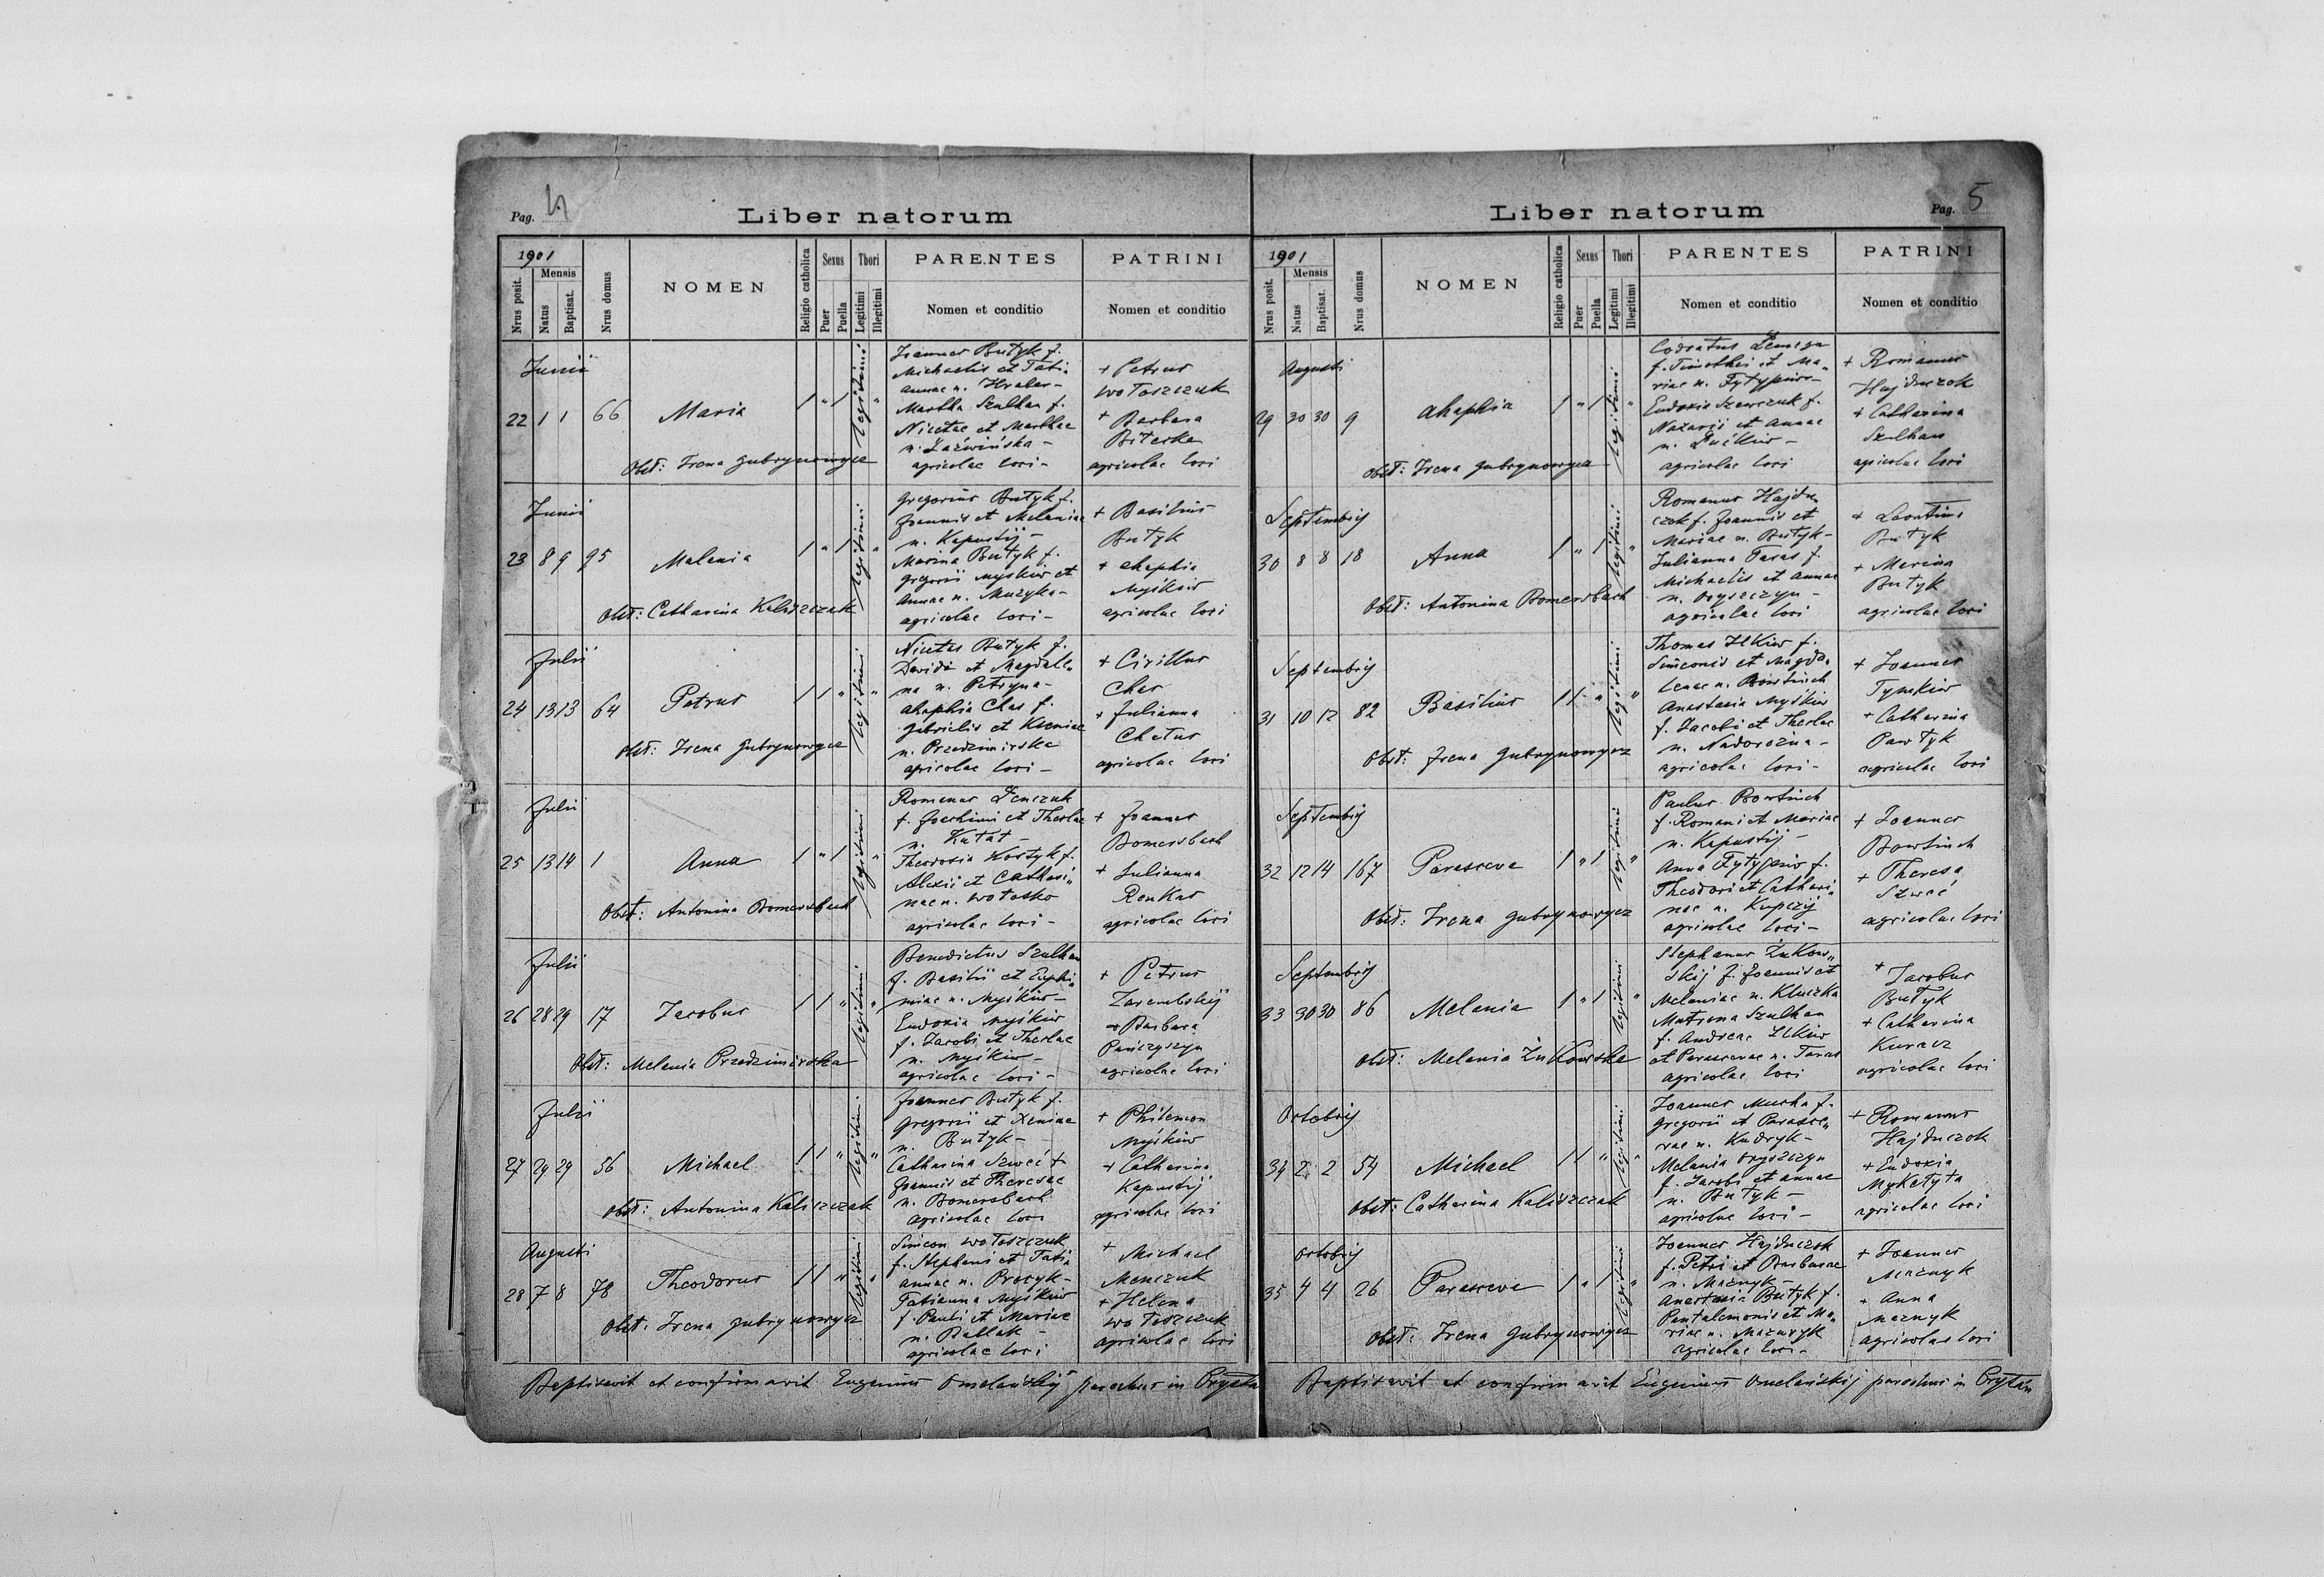 Pag. 4
Liber natorum
1901
Nrus posit.
Mensis
Natus
Baptisat.
Nrus domus
NOMEN
Religio catholica
Sexus
Puer
Puella
Thori
Legitimi
Illegitimi
PARENTES
Nomen et conditio
PATRINI
Nomen et conditio
Junii
22 1 1 66 Maria 1 " 1 legitimi "
Obst: Irena Gubrynowycz
Joannes Butyk f.
Michaelis et Tati„
annae n. Hraber-
Martha Szulhan f.
Nicetae et Marthae
n. Łaźwińska -
agricolae loci -
+ Petrus
Wołoszczuk
+ Barbara
Biterka
agricolae loci
Junii
23 8 9 95 Melania 1 " 1 legitimi "
Obst: Catharina Kaliszczak
Gregorius Butyk f.
Joannis et Melaniae
n. Kapustij -
Marina Butyk f.
Gregorii Myśkiw et
Annae n. Muzyka -
agricolae loci -
+ Basilius
Butyk
+ Ahaphia
Myśkiw
agricolae loci
Julii
24 13 13 64 Petrus 1 1 " legitimi "
Obst: Irena Gubrynowycz
Nicetas Butyk f.
Davidi et Magdale„
na n. Petryna -
Ahaphia Chas f.
Gabrielis et Kseniae
n. Przedzimirska
agricolae loci -
+ Cirillus
Chas
+ Julianna
Chetus
agricolae loci
Julii
25 13 14 1 Anna 1 " 1 legitimi "
Obst: Antonina Bomersbach
Romanus Denczuk
f. Joachimi et Theclae
n. Kułat -
Theodosia Kostyk f.
Alexii et Cathari„
nae n. Wołosko
agricolae loci -
+ Joannes
Bomersbach
+ Julianna
Renkas
agricolae loci
Julii
26 28 29 17 Jacobus 1 1 " legitimi "
Obst: Melania Przedzimirska
Benedictus Szulhan
f. Basilii et Euphi„
miae n. Myśkiw -
Eudoxia Myśkiw
f. Jacobi et Theclae
n. Myśkiw -
agricolae loci -
+ Petrus
Zarembskij
+ Barbara
Pańczyszyn
agricolae loci
Julii
27 29 29 56 Michael 1 1 " legitimi "
Obst: Antonina Kaliszczak
Joannes Butyk f.
Gregorii et Xeniae
n. Butyk -
Catharina Szweć f
Joannis et Theresae
n. Bomersbach
agricolae loci
+ Philemon
Myśkiw
+ Catharina
Kapustij
agricolae loci
Augusti
28 7 8 78 Theodorus 1 1 " legitimi "
Obst. Irena Gubrynowycz
Simeon Wołoszczuk
f. Stephani et Tati„
annae n. Procyk -
Tatianna Myśkiw
f. Pauli et Mariae
n. Ballak -
agricolae loci
+ Michael
Menczuk
+ Helena
Wołoszczuk
agricolae loci
Baptisavit et confirmavit Eugenius Omelańskij parochus in
Liber natorum
Pag. 5
1901
Nrus posit.
Mensis
Natus
Baptisat.
Nrus domus
NOMEN
Religio catholica
Sexus
Puer
Puella
Thori
Legitimi
Illegitimi
PARENTES
Nomen et conditio
PATRINI
Nomen et conditio
Augusti
29 30 30 9 Ahaphia 1 " 1 legitimi "
Obst: Irena Gubrynowycz
Codratus
f. Timothei et Ma„
riae n. Fytypiw -
Eudoxia Szewczuk f.
Nazarii et Annae
agricolae loci
+ Romanus
Hajduczok
+ Catharina
Szulhan
agricolae loci
Septembris
30 8 8 18 Anna 1 " 1 legitimi "
Obst: Antonina Bomersbach
Romanus Hajdu„
czok f. Joannis et
Mariae n. Butyk -
Julianna Taras f.
Michaelis et Annae
n. Oryszczyn -
agricolae loci
+ Leontius
Butyk
+ Marina
Butyk
agricolae loci
Septembris
31 10 12 82 Basilius 1 1 " legitimi "
Obst: Irena Gubrynowycz
Thomas Ilkiw f.
Simeonis et Magda„
lenae n. Bowtiuch
Anastasia Myśkiw
f. Jacobi et Theclae
n. Nadorożna -
agricolae loci -
+ Joannes
Tymkiw
+ Catharina
Pawłyk
agricolae loci
Septembris
32 12 14 167 Parasceve 1 " 1 legitimi "
Obst: Irena Gubrynowycz
Paulus Bowtiuch
f. Romani et Mariae
n. Kapustij -
Anna Fytypiw f.
Theodori et Cathari„
nae n. Kupczij
agricolae loci -
+ Joannes
Bowtiuch
+ Theresa
Szweć
agricolae loci
Septembris
33 30 30 86 Melania 1 " 1 legitimi "
Obst: Melania Żukowska
Stephanus Żukow„
skij f. Joannis et
Melaniae n. Kluczka
Matrona Szulhan
f. Andreae Ilkiw
et Parascevae n. Taras
agricolae loci
+ Jacobus
Butyk
+ Catharina
Kuracz
agricolae loci
Octobris
34 2 2 54 Michael 1 1 " legitimi "
Obst: Catharina Kaliszczak
Joannes Mucha f.
Gregorii et Parasce„
vae n. Kudryk -
Melania Oryszczyn
f. Jacobi et Annae
n. Butyk -
agricolae loci -
+ Romanus
Hajduczok
+ Eudoxia
Myketyta
agricolae loci
Octobris
35 4 4 26 Parasceve 1 " 1 legitimi "
Obst: Irena Gubrynowycz
Joannes Hajduczok
f. Petri et Barbarae
n. Maznyk -
Anastasia Butyk f.
Pantalemonis et Ma„
riae n. Mazuryk
agricolae loci -
+ Joannes
Maznyk
+ Anna
Maznyk
agricolae loci
Baptisavit et confirmavit Eugenius Omelańskij parochus in